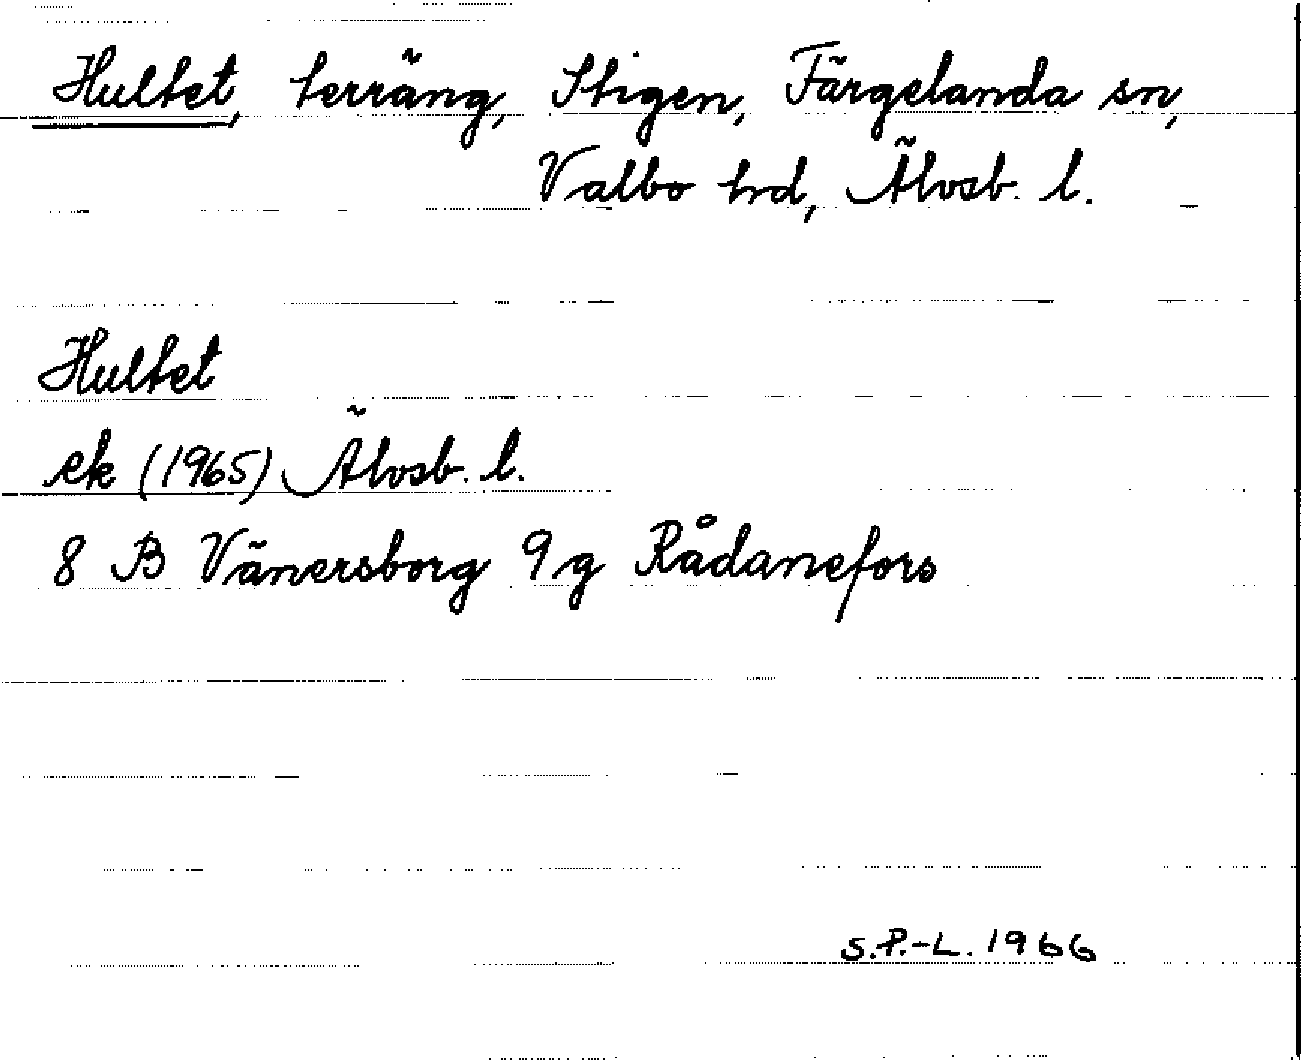 Hultet, terräng, Stigen, Färgelanda sn,
Valbo hd, Älvsb. l.
Hultet
ek (1965) Älvsb. l.
8 B Vänersborg 9g Rådanefors
S.P.-L. 1966